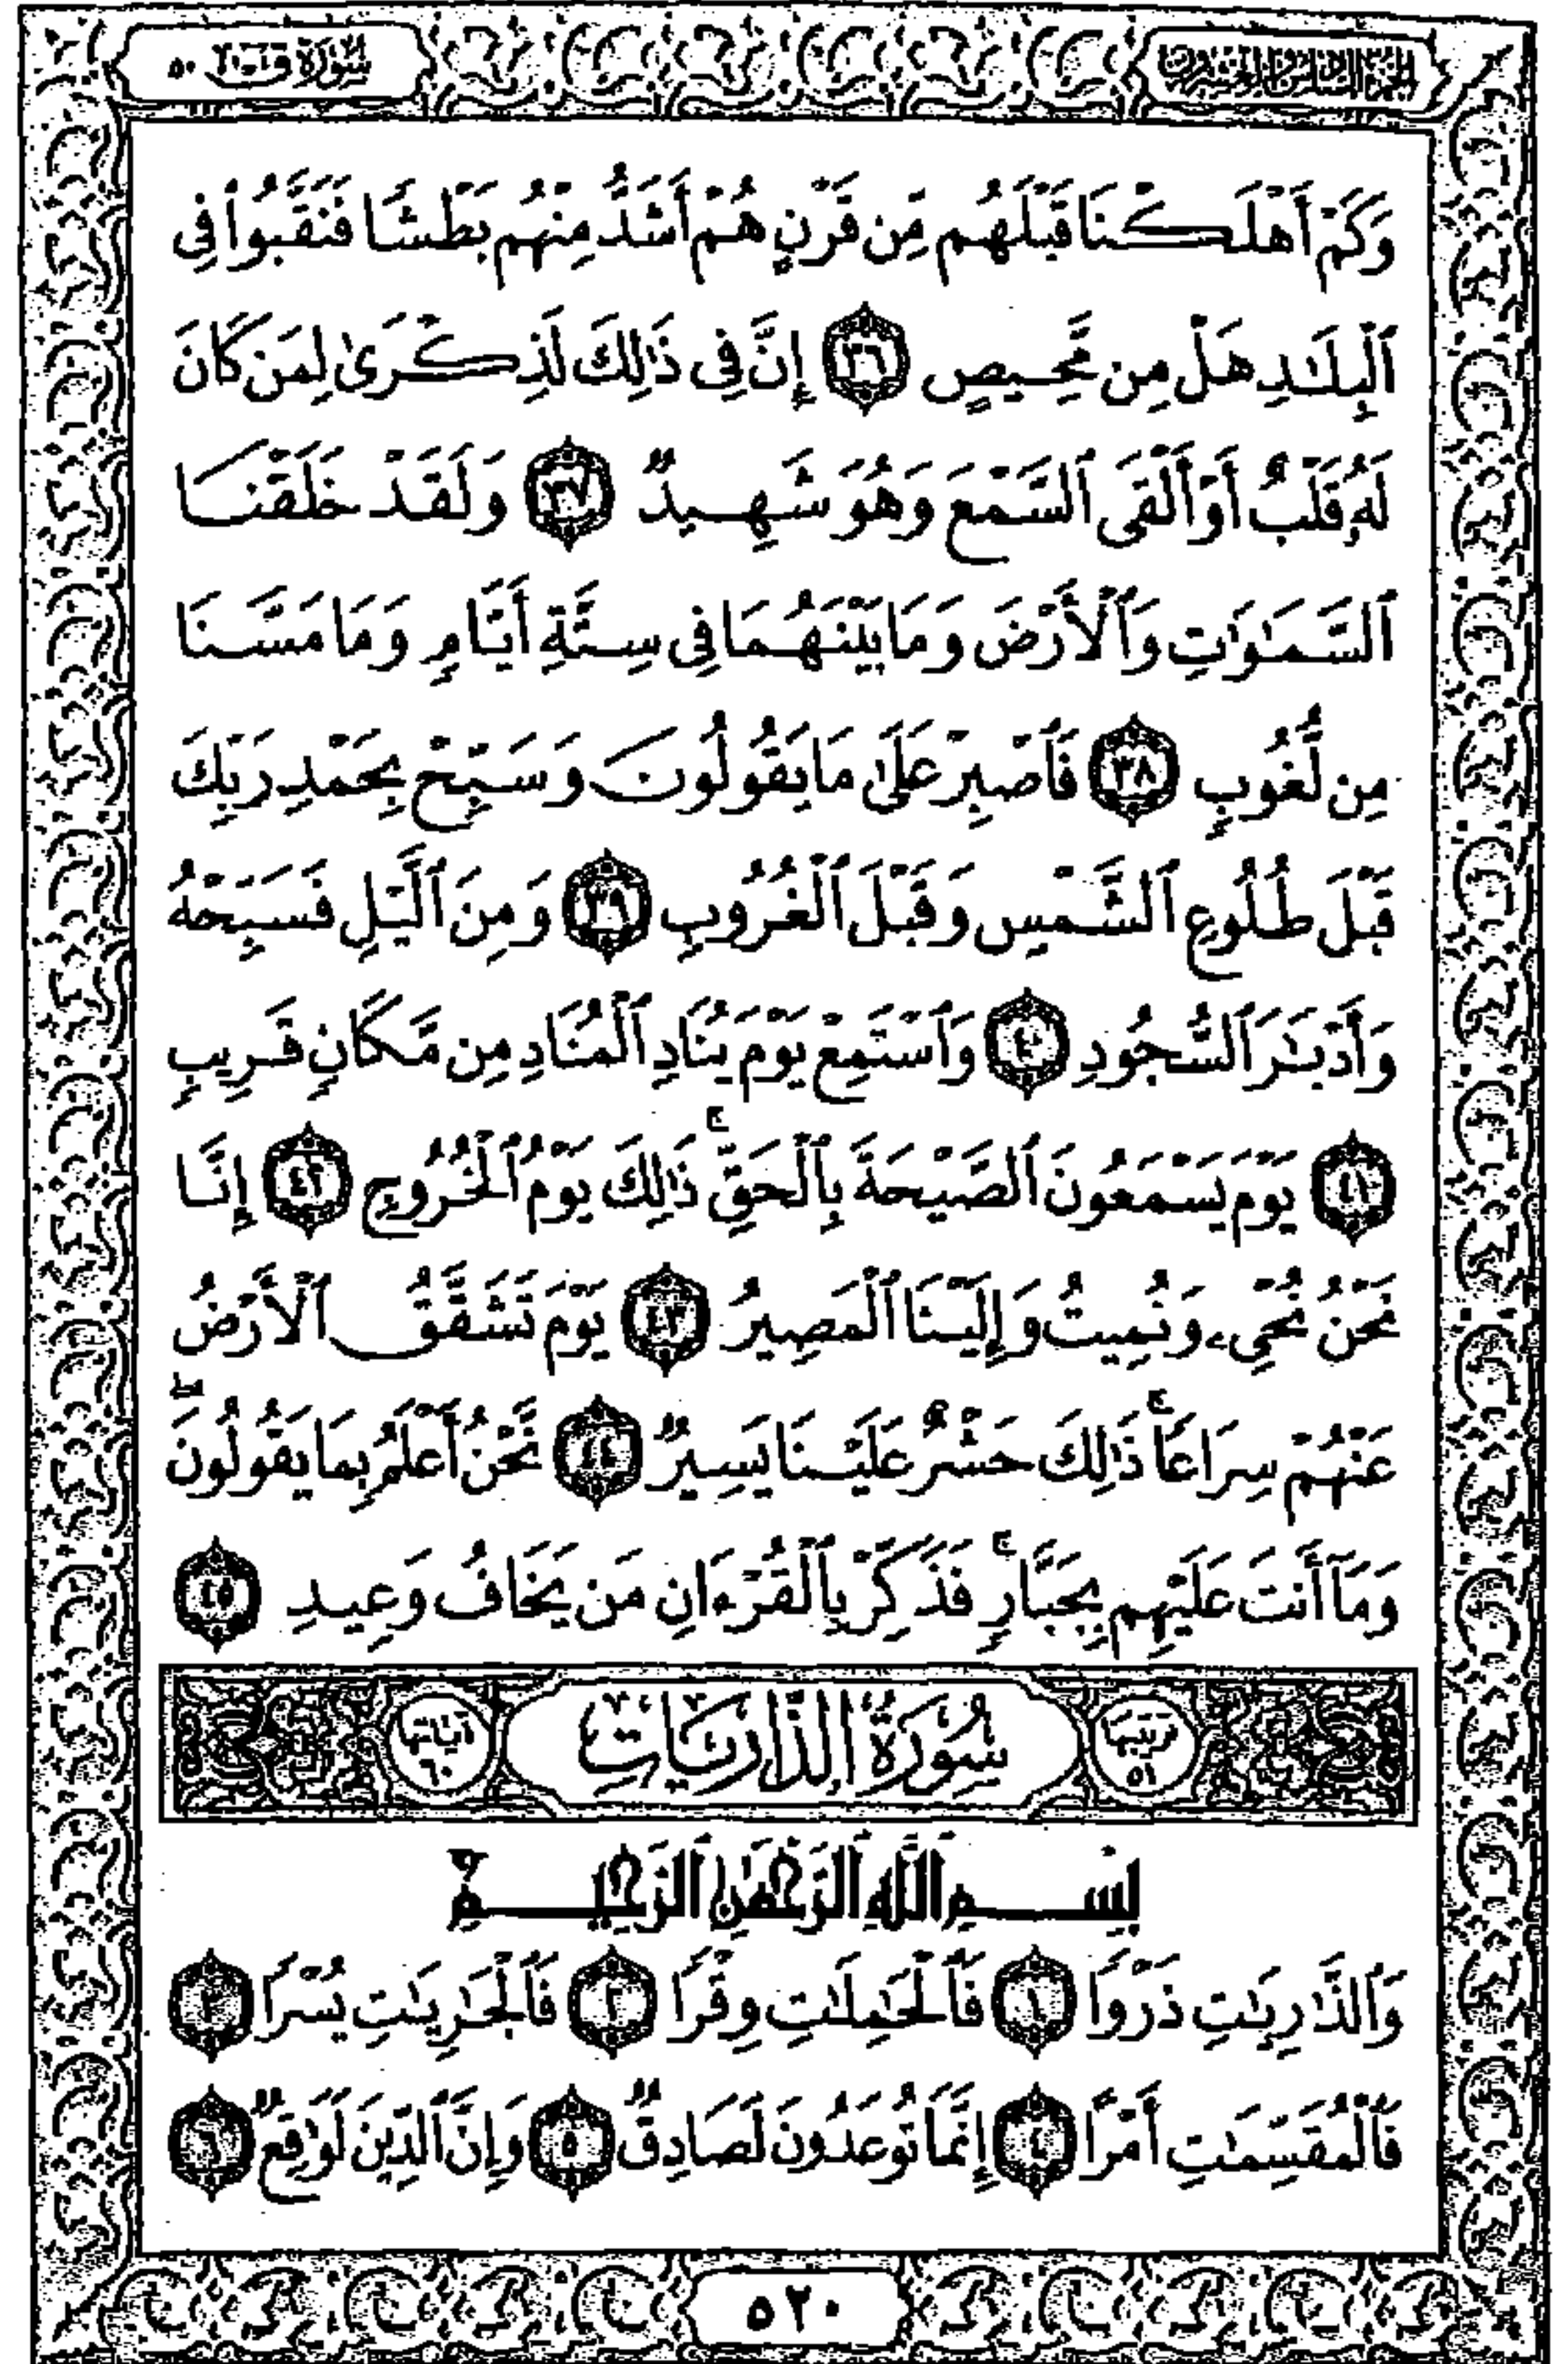 الجزء السادس والعشرون
سورة ق ٥٠
وَكَمْ أَهْلَكْنَا قَبْلَهُم مِّن قَرْنٍ هُمْ أَشَدُّ مِنْهُم بَطْشًا فَنَقَّبُوا۟ فِى
ٱلْبِلَـٰدِ هَلْ مِن مَّحِيصٍ ٣٦ إِنَّ فِى ذَٰلِكَ لَذِكْرَىٰ لِمَن كَانَ
لَهُۥ قَلْبٌ أَوْ أَلْقَى ٱلسَّمْعَ وَهُوَ شَهِيدٌ ٣٧ وَلَقَدْ خَلَقْنَا
ٱلسَّمَـٰوَٰتِ وَٱلْأَرْضَ وَمَا بَيْنَهُمَا فِى سِتَّةِ أَيَّامٍ وَمَا مَسَّنَا
مِن لُّغُوبٍ ٣٨ فَٱصْبِرْ عَلَىٰ مَا يَقُولُونَ وَسَبِّحْ بِحَمْدِ رَبِّكَ
قَبْلَ طُلُوعِ ٱلشَّمْسِ وَقَبْلَ ٱلْغُرُوبِ ٣٩ وَمِنَ ٱلَّيْلِ فَسَبِّحْهُ
وَأَدْبَـٰرَ ٱلسُّجُودِ ٤٠ وَٱسْتَمِعْ يَوْمَ يُنَادِ ٱلْمُنَادِ مِن مَّكَانٍ قَرِيبٍ
٤١ يَوْمَ يَسْمَعُونَ ٱلصَّيْحَةَ بِٱلْحَقِّ ۚ ذَٰلِكَ يَوْمُ ٱلْخُرُوجِ ٤٢ إِنَّا
نَحْنُ نُحْىِۦ وَنُمِيتُ وَإِلَيْنَا ٱلْمَصِيرُ ٤٣ يَوْمَ تَشَقَّقُ ٱلْأَرْضُ
عَنْهُمْ سِرَاعًا ۚ ذَٰلِكَ حَشْرٌ عَلَيْنَا يَسِيرٌ ٤٤ نَّحْنُ أَعْلَمُ بِمَا يَقُولُونَ ۖ
وَمَآ أَنتَ عَلَيْهِم بِجَبَّارٍ ۚ فَذَكِّرْ بِٱلْقُرْءَانِ مَن يَخَافُ وَعِيدِ ٤٥
ترتيبها ٥١ سُورَةُ الذَّارِيَاتِ آياتها ٦٠
بِسْمِ ٱللَّهِ ٱلرَّحْمَـٰنِ ٱلرَّحِيمِ
وَٱلذَّٰرِيَـٰتِ ذَرْوًا ١ فَٱلْحَـٰمِلَـٰتِ وِقْرًا ٢ فَٱلْجَـٰرِيَـٰتِ يُسْرًا ٣
فَٱلْمُقَسِّمَـٰتِ أَمْرًا ٤ إِنَّمَا تُوعَدُونَ لَصَادِقٌ ٥ وَإِنَّ ٱلدِّينَ لَوَٰقِعٌ ٦
٥٢٠